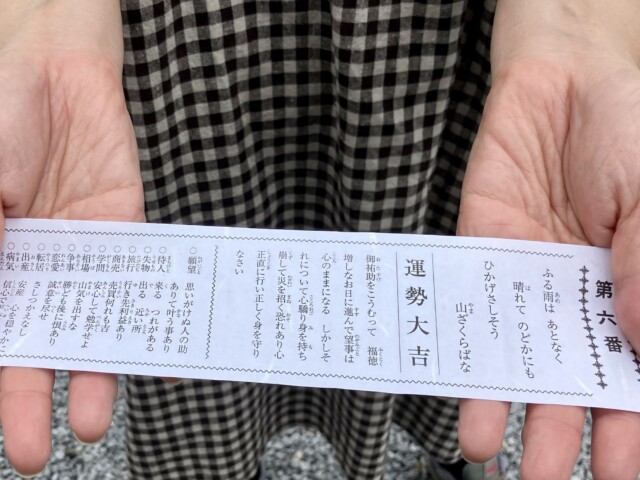 第六番
ふる雨は あとなく
晴れて のどかにも
ひかげさしそう
山ざくらばな
運勢大吉
御祐助をこうむって 福徳
増しなお日に進んで望事は
心のままになる しかしそ
れについて心驕り身を持ち
崩して災を招く恐れあり心
正直に行い正しく身を守り
なさい
○願望 思いがけぬ人の助
ありて叶う事あり
○待人 来る つれがある
○失物 出る 近い所
○旅行 行先利益あり
○商売 売買何れも吉
○学問 安心して勉学せよ
○相場 山気を出すな
○争事 勝も後に恨あり
○恋愛 誠意を尽せ
○転居 さしつかえなし
○出産 安産
○病気 信心で